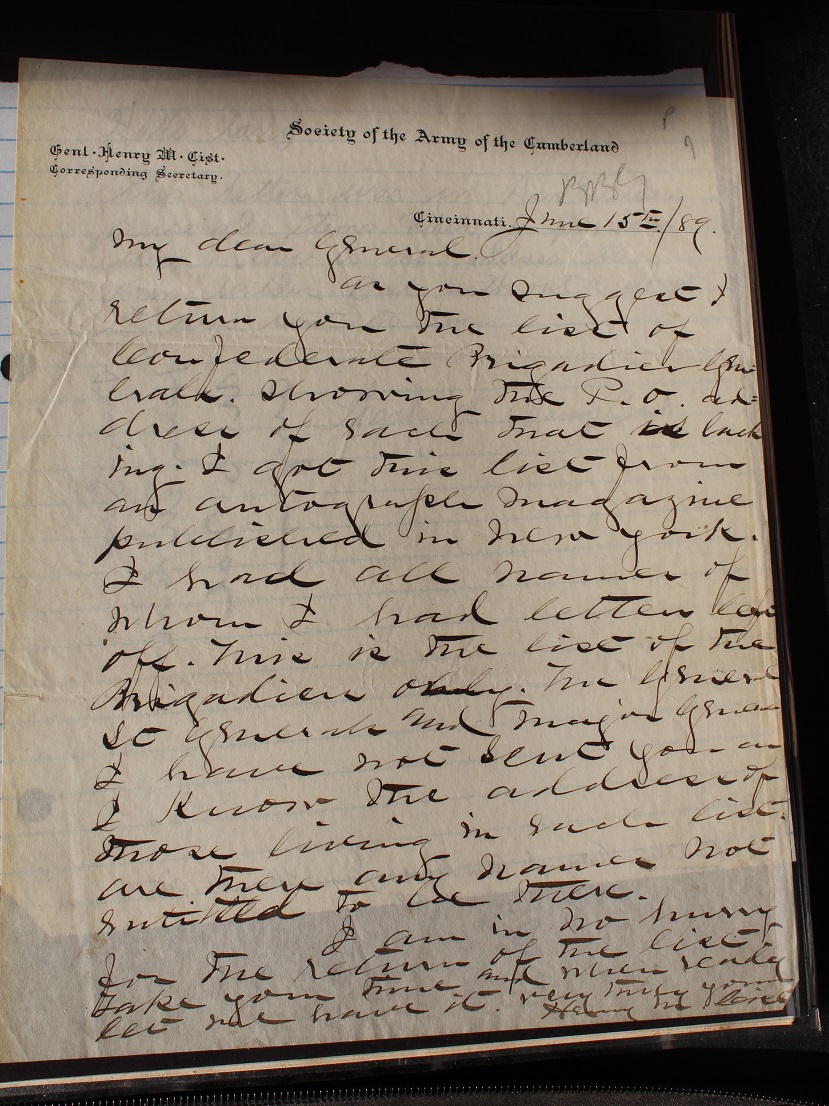 Society of the Army of the Cumberland
Genl. Henry M. Cist.
Corresponding Secretary.
Cincinnati. June 15th/89.
My dear General.
as you suggest I
return you the list of
Confederate Brigadier Gen
erals. showing the P. O. ad=
dress of each that is lack
ing. I got this list from
an autograph magazine
published in New York.
I had all names of
whom I had letters left
off. This is the list of the
Brigadiers only. The General
Lt Generals and Major General
I have not sent you as
I know the address of
those living in each list.
are there any names not
entitled to be there.
I am in no hurry
for the return of the list,
take your time and when ready
let me have it. very truly yours
Henry M Cist